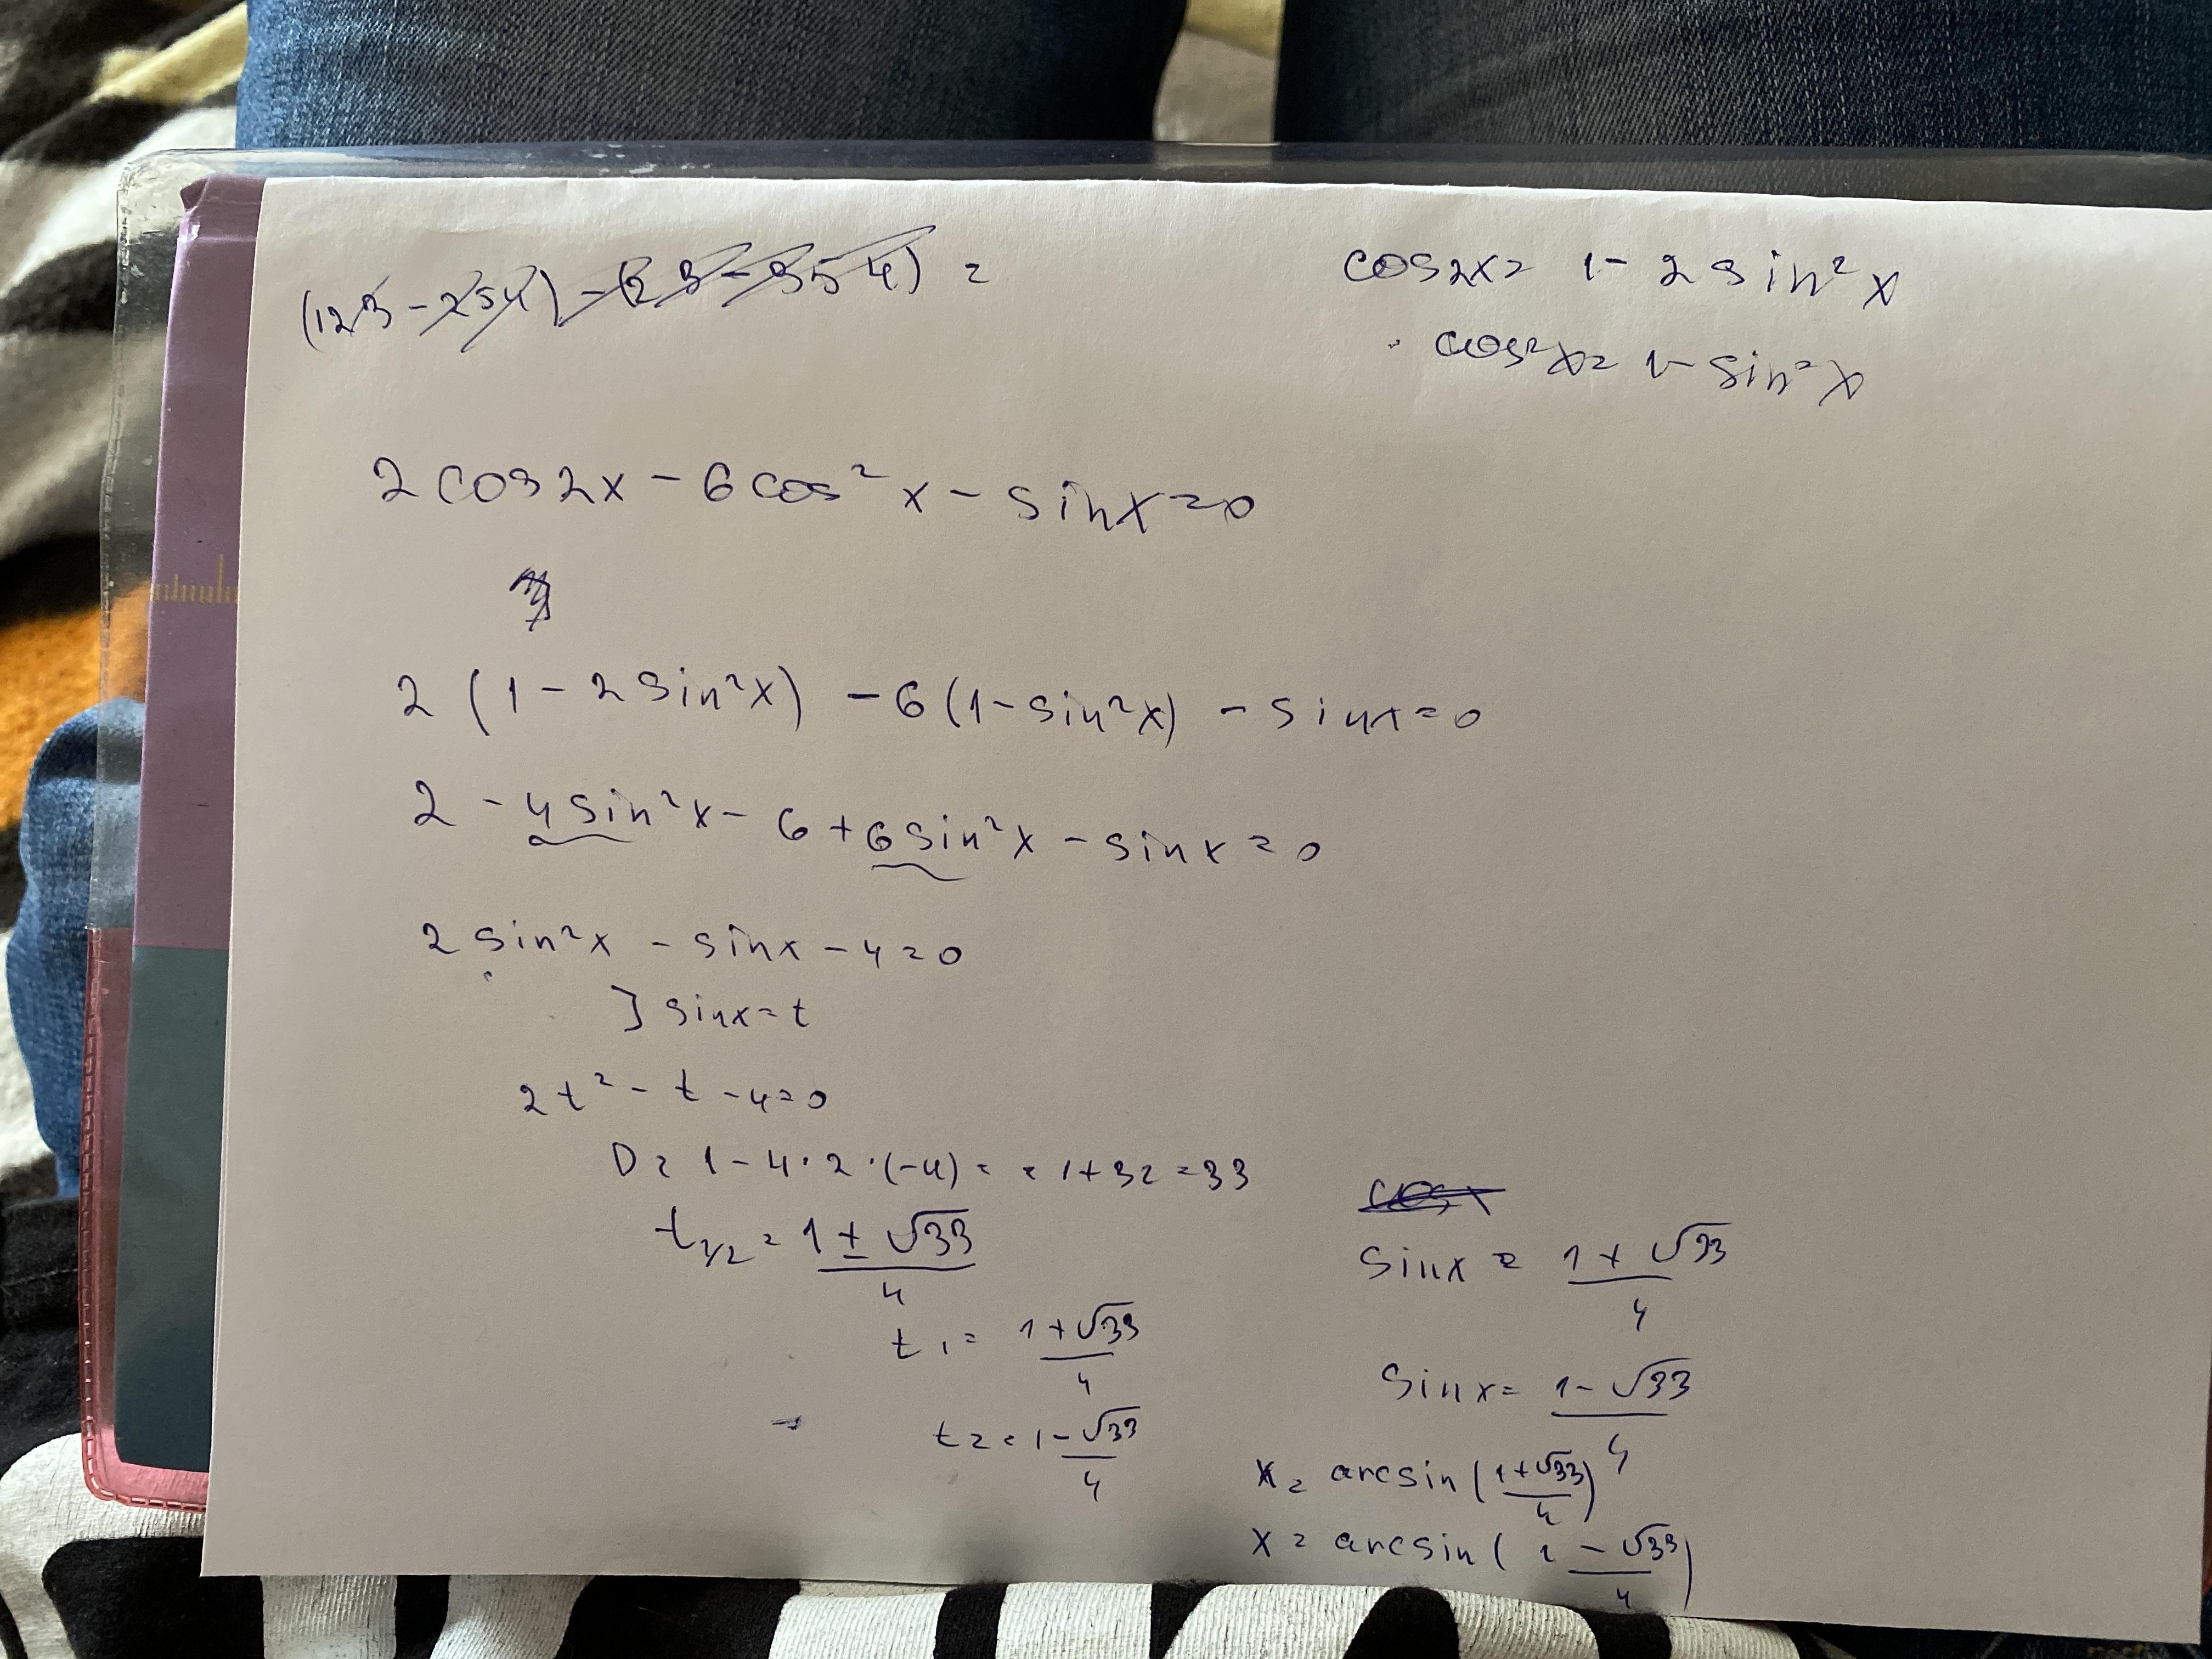 (123 - 254) - (23 - 354) =
cos2x = 1 - 2 sin² x
cos²x = 1 - sin² x
2 cos 2x - 6 cos² x - sin x = 0
2 (1 - 2 sin²x) - 6 (1 - sin²x) - sin x = 0
2 - 4 sin²x - 6 + 6 sin²x - sin x = 0
2 sin²x - sin x - 4 = 0
] sin x = t
2t² - t - 4 = 0
D = 1 - 4 · 2 · (-4) = = 1 + 32 = 33
t1/2 = 1 ± √33 / 4
t1 = 1 + √33 / 4
t2 = 1 - √33 / 4
cos x
sin x = 1 + √33 / 4
sin x = 1 - √33 / 4
x = arcsin (1 + √33 / 4)
x = arcsin (1 - √33 / 4)